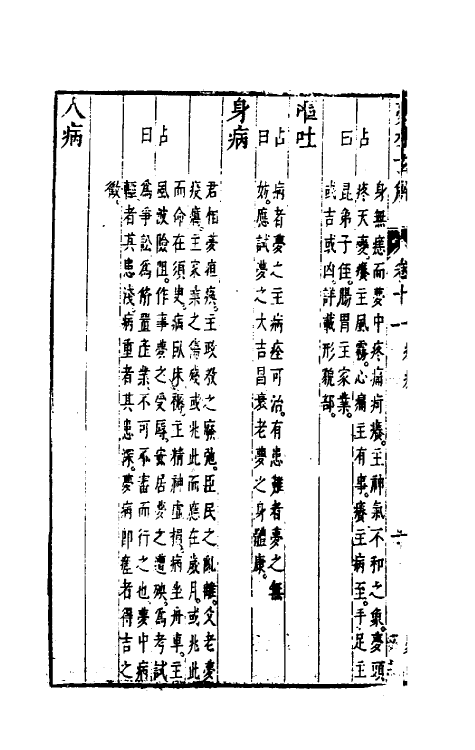 占曰
身無恙而夢中疼痛疴癢主神氣不和之象夢頭
疼天憂癢主風霧心痛主有事癢主病至手足主
昆弟子侄腸胃主家業
或吉或凶詳載形貌部
嘔吐
占曰
病者夢之主病痊可治有患難者夢之無
妨應試夢之大吉昌衰老夢之身體康
身病
占曰
君相夢疽瘼主政教之廢弛臣民之亂離父老夢
疫癘主家業之傷殘或兆此而應在歲月或兆此
而命在須臾病臥床褥主精神虛損病坐舟車主
風波險阻作事夢之受辱安居夢之遭殃為考試
為爭訟為營置產業不可不審而行之也夢中病
輕者其患淺病重者其患深夢病即瘥者得吉之
徵
人病
卷十一